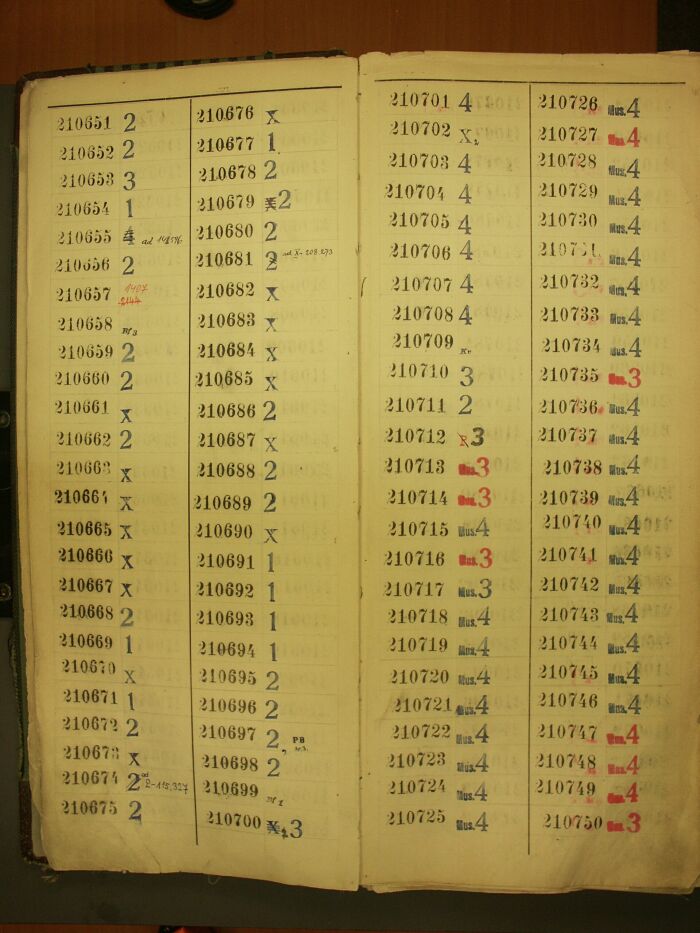 210651 2
210652 2
210653 3
210654 1
210655 4 ad
210656 2
210657
210658
210659 2
210660 2
210661 X
210662 2
210663 X
210664 X
210665 X
210666 X
210667 X
210668 2
210669 1
210670 X
210671 1
210672 2
210673 X
210674 2 ad
210675 2
210676 X
210677 1
210678 2
210679 X 2
210680 2
210681 2 ad X-208.273
210682 X
210683 X
210684 X
210685 X
210686 2
210687 X
210688 2
210689 2
210690 X
210691 1
210692 1
210693 1
210694 1
210695 2
210696 2
210697 2 PB
210698 2
210699
210700 X 3
210701 4
210702 X
210703 4
210704 4
210705 4
210706 4
210707 4
210708 4
210709
210710 3
210711 2
210712 3
210713 Mus.3
210714 Mus.3
210715 Mus.4
210716 Mus.3
210717 Mus.3
210718 Mus.4
210719 Mus.4
210720 Mus.4
210721 Mus.4
210722 Mus.4
210723 Mus.4
210724 Mus.4
210725 Mus.4
210726 Mus.4
210727 Mus.4
210728 Mus.4
210729 Mus.4
210730 Mus.4
210731 Mus.4
210732 Mus.4
210733 Mus.4
210734 Mus.4
210735 Mus.3
210736 Mus.4
210737 Mus.4
210738 Mus.4
210739 Mus.4
210740 Mus.4
210741 Mus.4
210742 Mus.4
210743 Mus.4
210744 Mus.4
210745 Mus.4
210746 Mus.4
210747 Mus.4
210748 Mus.4
210749 Mus.4
210750 Mus.3